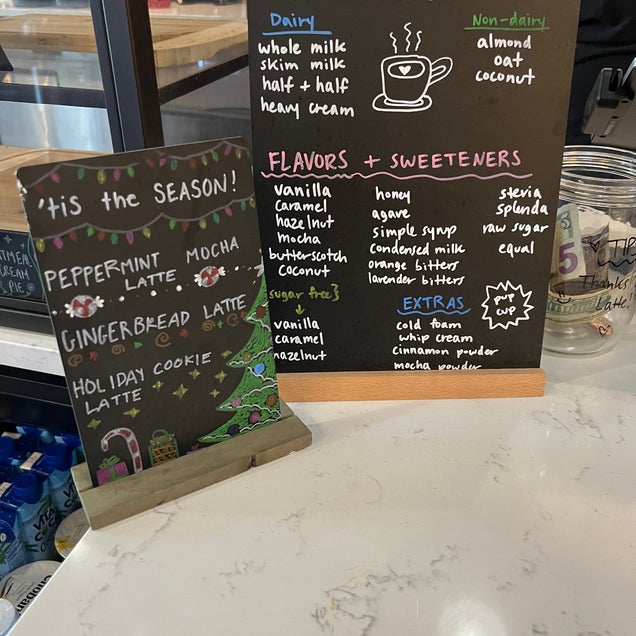 'tis the SEASON!
PEPPERMINT MOCHA
LATTE
GINGERBREAD LATTE
HOLIDAY COOKIE
LATTE
Dairy
whole milk
skim milk
half + half
heavy cream
Non-dairy
almond
oat
coconut
FLAVORS + SWEETENERS
vanilla
caramel
hazelnut
mocha
butterscotch
coconut
sugar free}
vanilla
caramel
hazelnut
honey
agave
simple syrup
condensed milk
orange bitters
lavender bitters
stevia
splenda
raw sugar
equal
EXTRAS
cold foam
whip cream
cinnamon powder
mocha powder
pup
cup
5
TIP
Thanks
Latte.
CREAM
PIE
VITA
COCO
Chobani